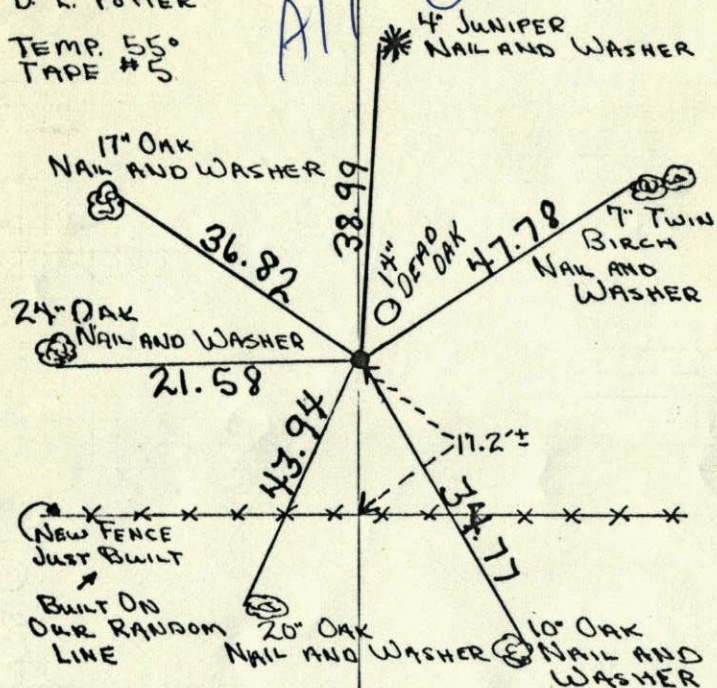 TEMP. 55°
TAPE #5
4" JUNIPER
NAIL AND WASHER
17" OAK
NAIL AND WASHER
38.99
36.82
14"
DEAD
OAK
47.78
7" TWIN
BIRCH
NAIL AND
WASHER
24" OAK
NAIL AND WASHER
21.58
43.94
17.2'±
34.77
NEW FENCE
JUST BUILT
BUILT ON
OUR RANDOM
LINE
20" OAK
NAIL AND WASHER
10" OAK
NAIL AND
WASHER